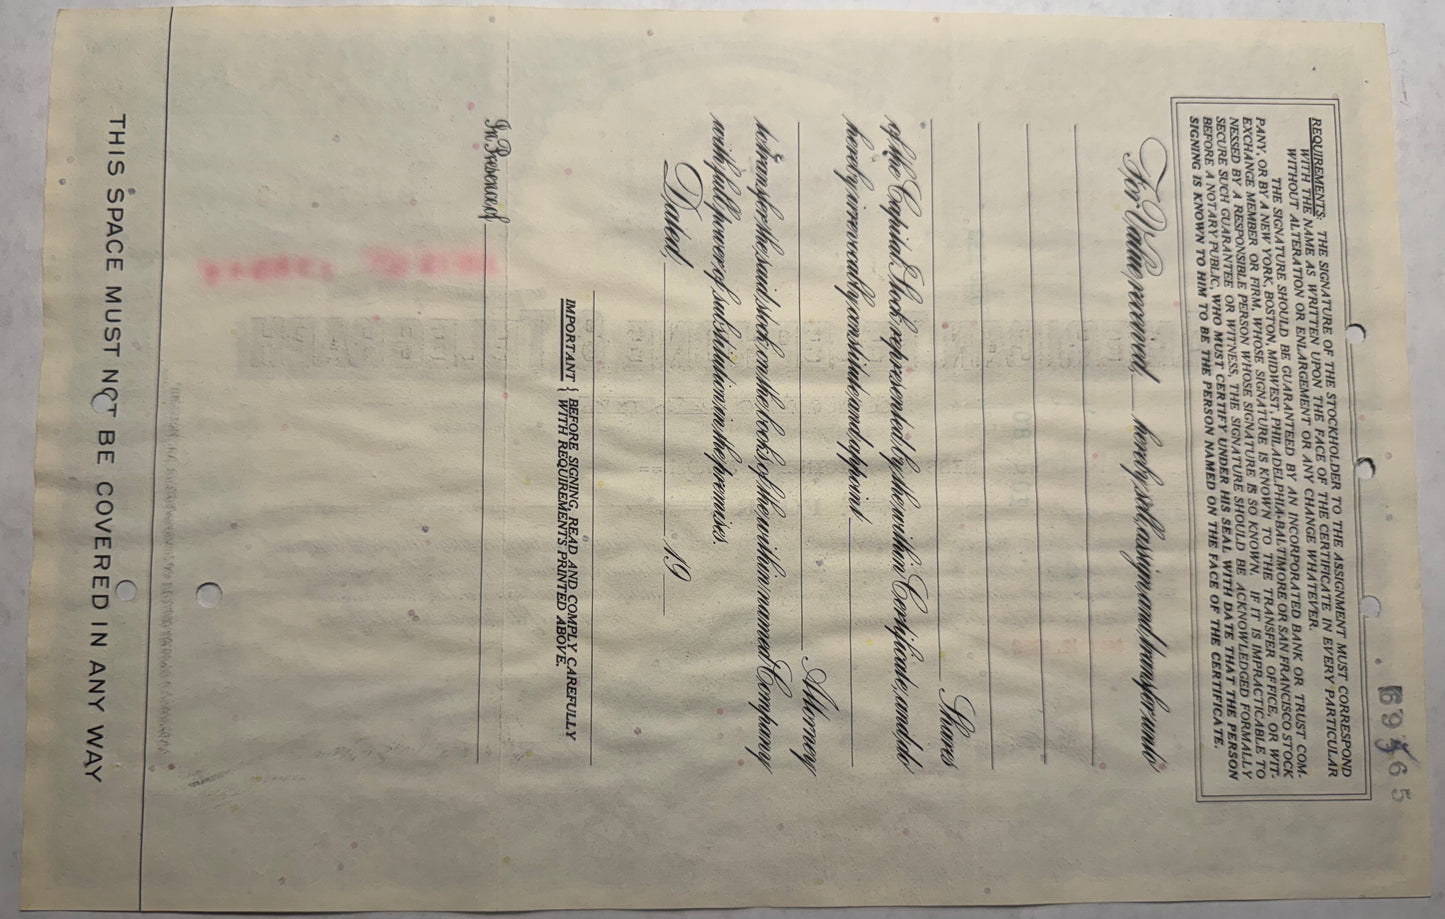 REQUIREMENTS: THE SIGNATURE OF THE STOCKHOLDER TO THE ASSIGNMENT MUST CORRESPOND
WITH THE NAME AS WRITTEN UPON THE FACE OF THE CERTIFICATE IN EVERY PARTICULAR
WITHOUT ALTERATION OR ENLARGEMENT OR ANY CHANGE WHATEVER.
THE SIGNATURE SHOULD BE GUARANTEED BY AN INCORPORATED BANK OR TRUST COM-
PANY, OR BY A NEW YORK, BOSTON, MIDWEST, PHILADELPHIA-BALTIMORE OR SAN FRANCISCO STOCK
EXCHANGE MEMBER OR FIRM, WHOSE SIGNATURE IS KNOWN TO THE TRANSFER OFFICE, OR WIT-
NESSED BY A RESPONSIBLE PERSON WHOSE SIGNATURE IS SO KNOWN. IF IT IS IMPRACTICABLE TO
SECURE SUCH GUARANTEE OR WITNESS, THE SIGNATURE SHOULD BE ACKNOWLEDGED FORMALLY
BEFORE A NOTARY PUBLIC, WHO MUST CERTIFY UNDER HIS SEAL WITH DATE THAT THE PERSON
SIGNING IS KNOWN TO HIM TO BE THE PERSON NAMED ON THE FACE OF THE CERTIFICATE.
For Value received, hereby sell, assign and transfer unto
Shares
of the Capital Stock represented by the within Certificate, and do
hereby irrevocably constitute and appoint
Attorney
to transfer the said stock on the books of the within named Company
with full power of substitution in the premises.
Dated, 19
IMPORTANT { BEFORE SIGNING, READ AND COMPLY CAREFULLY
WITH REQUIREMENTS PRINTED ABOVE.
In Presence of
THIS SPACE MUST NOT BE COVERED IN ANY WAY